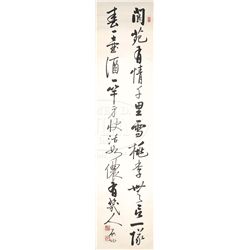 阆苑有情千里雪桃李無言一隊
春一壶酒一竿身快活如儂有幾人